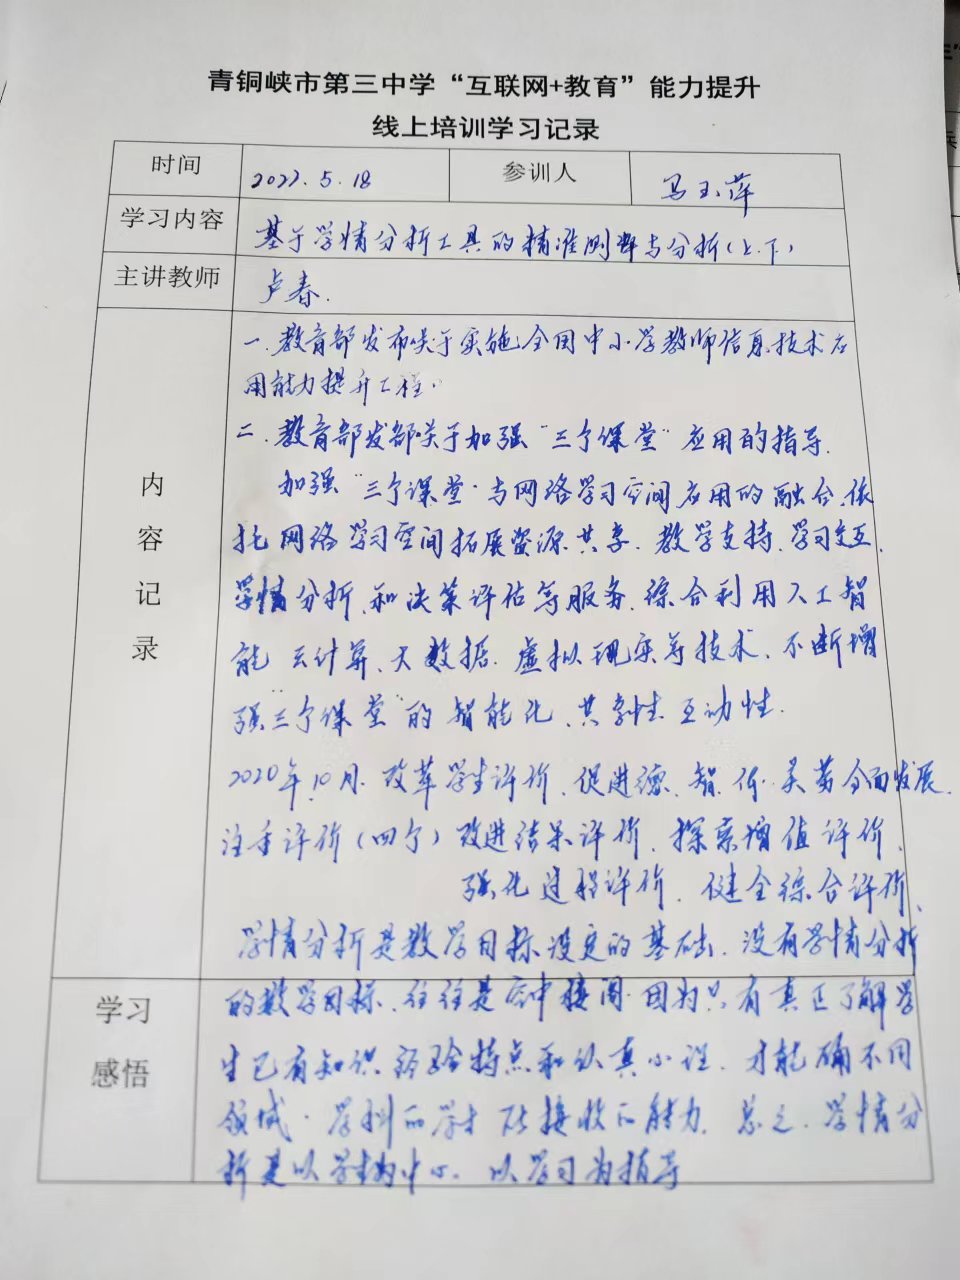 青铜峡市第三中学“互联网+教育”能力提升
线上培训学习记录
时间 2022.5.18 参训人 马玉萍
学习内容 基于学情分析工具的精准测评与分析(上.下)
主讲教师 卢春.
内容记录
一.教育部发布关于实施全国中小学教师信息技术应
用能力提升工程.
二.教育部发部关于加强“三个课堂”应用的指导.
加强“三个课堂”与网络学习空间应用的融合,依
托网络学习空间拓展资源共享、教学支持、学习交互、
学情分析、和决策评估等服务、综合利用人工智
能 云计算、大数据、虚拟现实等技术、不断增
强三个课堂”的智能化、共享性 互动性.
2020年10月.改革学生评价、促进德、智、体、美 劳全面发展.
注重评价(四个)改进结果评价、探索增值评价、
强化过程评价、健全综合评价、
学情分析是教学目标设定的基础.没有学情分析
学习感悟
的教学目标、往往是空中楼阁.因为只有真正了解学
生已有知识 经验特点和认真心理、才能确不同
领域、学科的学 接收的能力. 总之、学情分
析是以学生为中心、以学习为指导